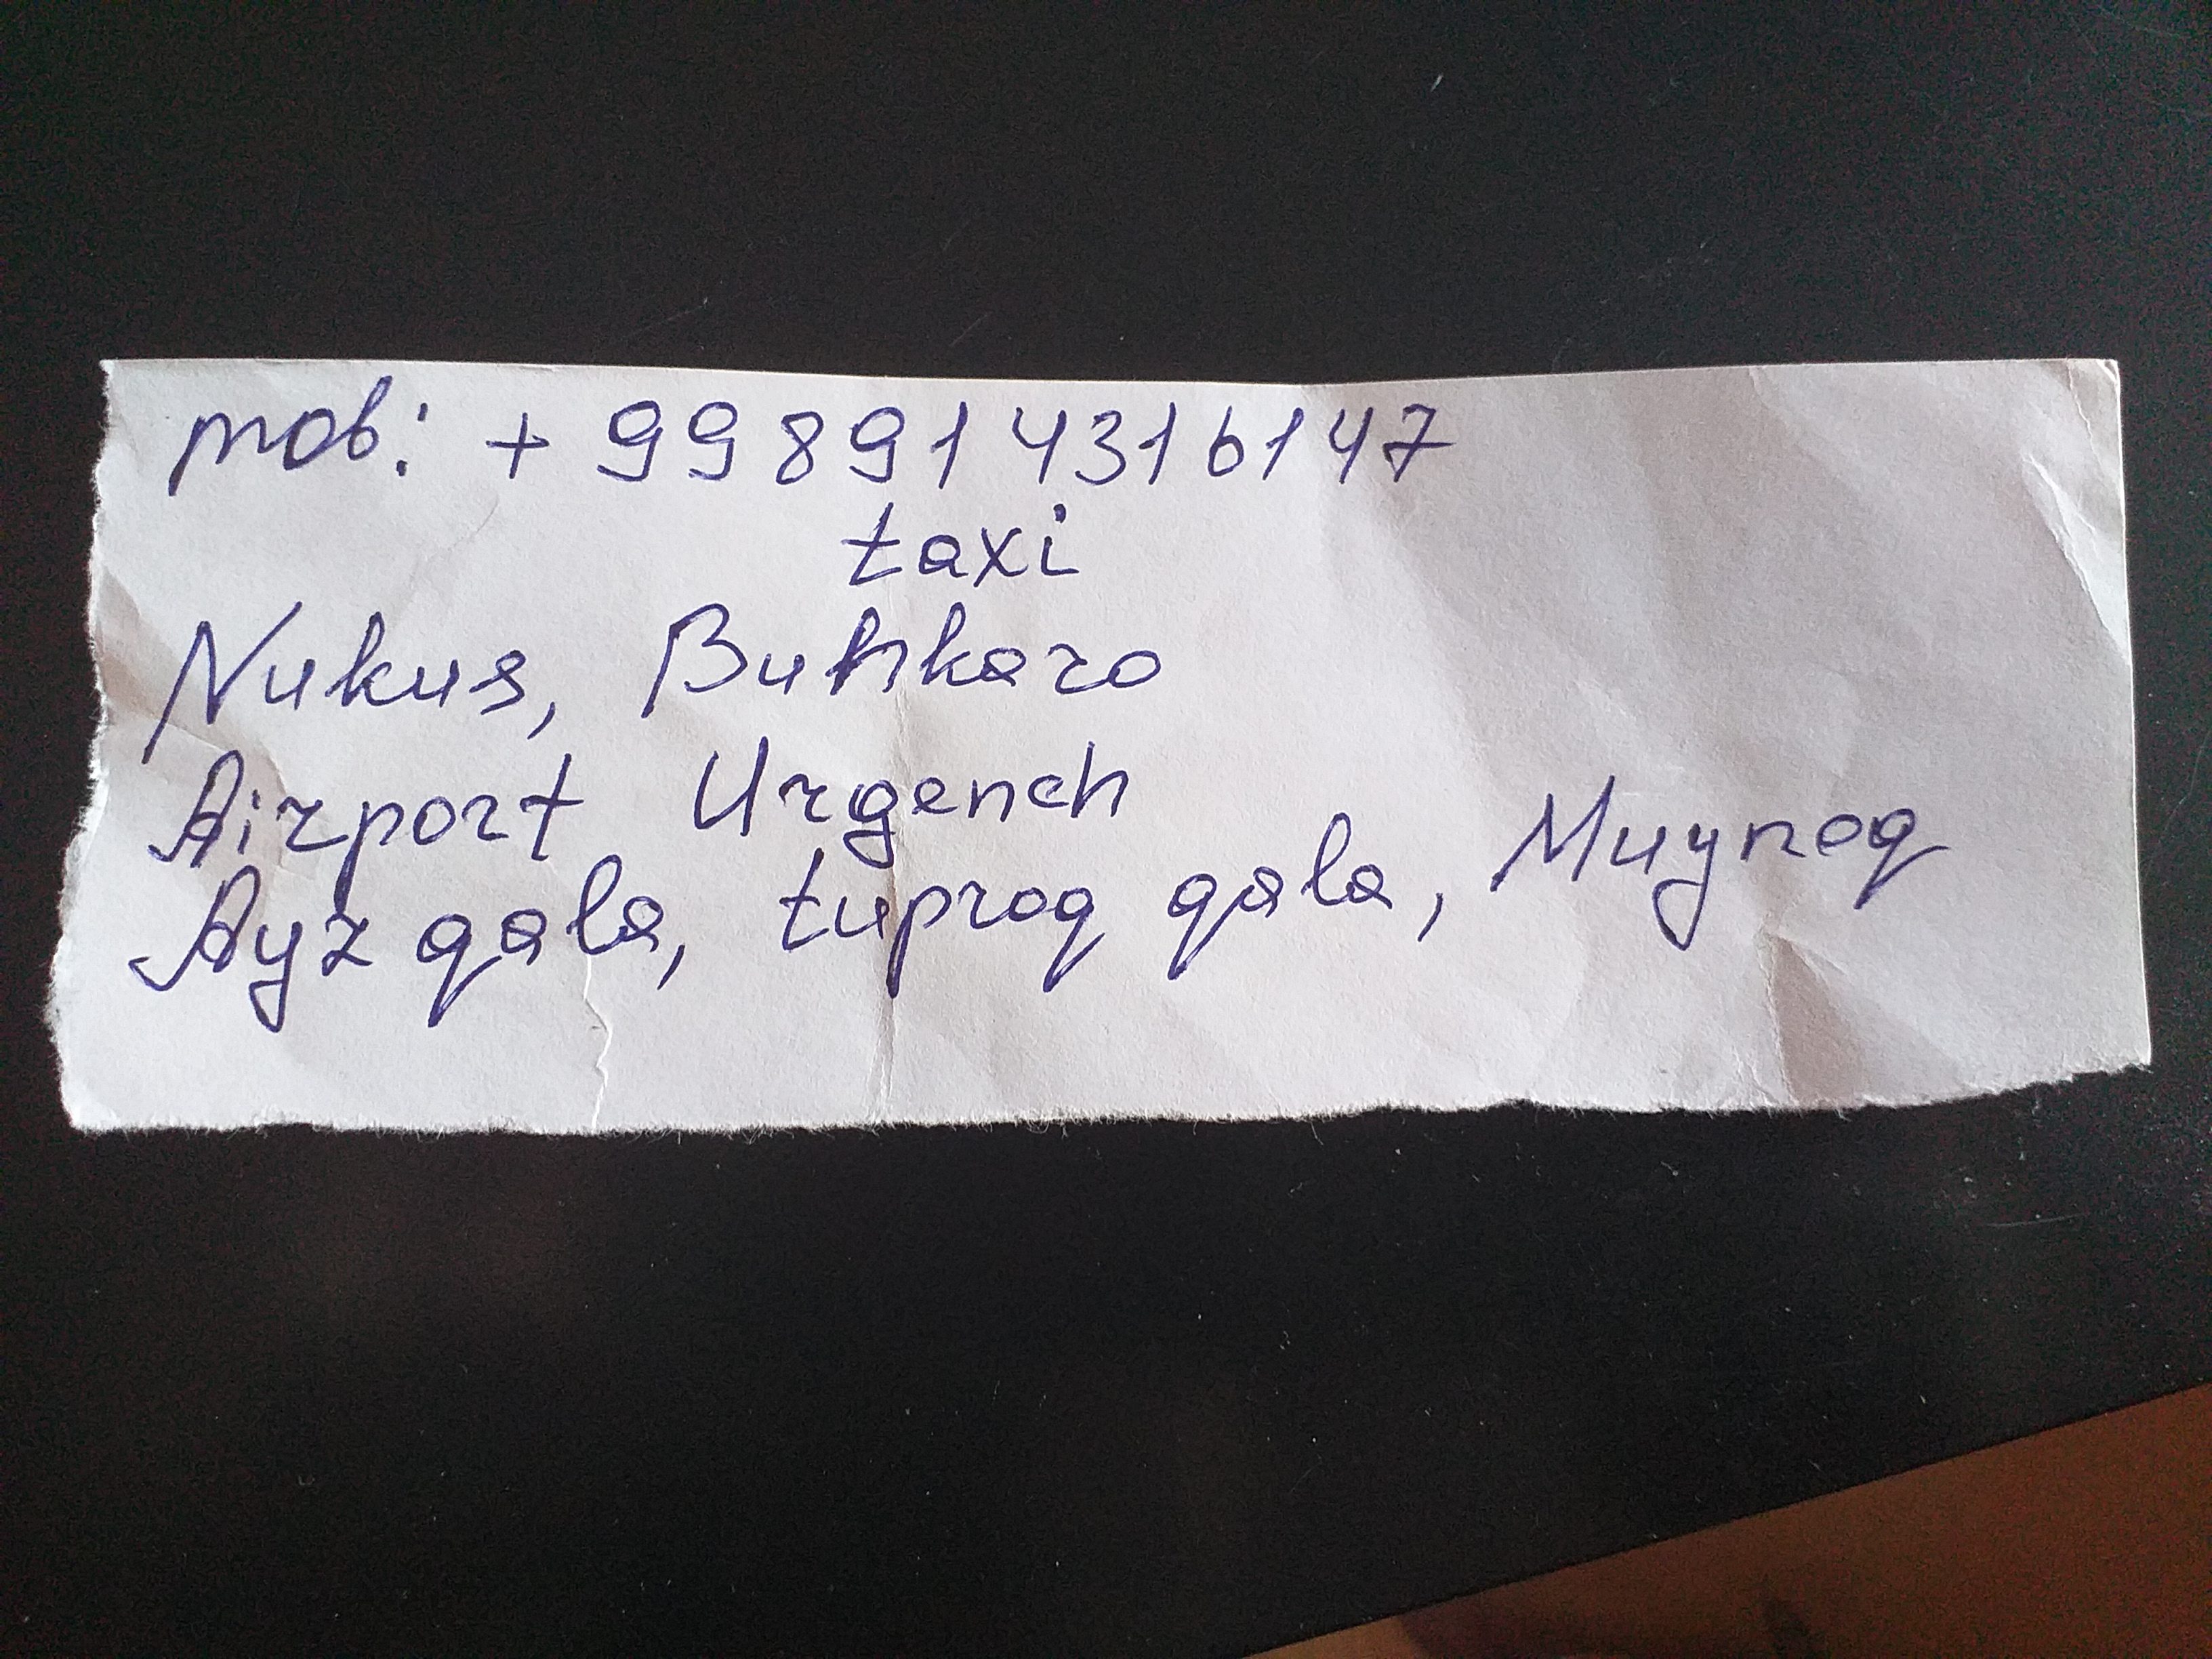 mob: + 998914316147
taxi
Nukus, Buhkaro
Airport Urgench
Ayz qala, tuproq qala, Muynoq